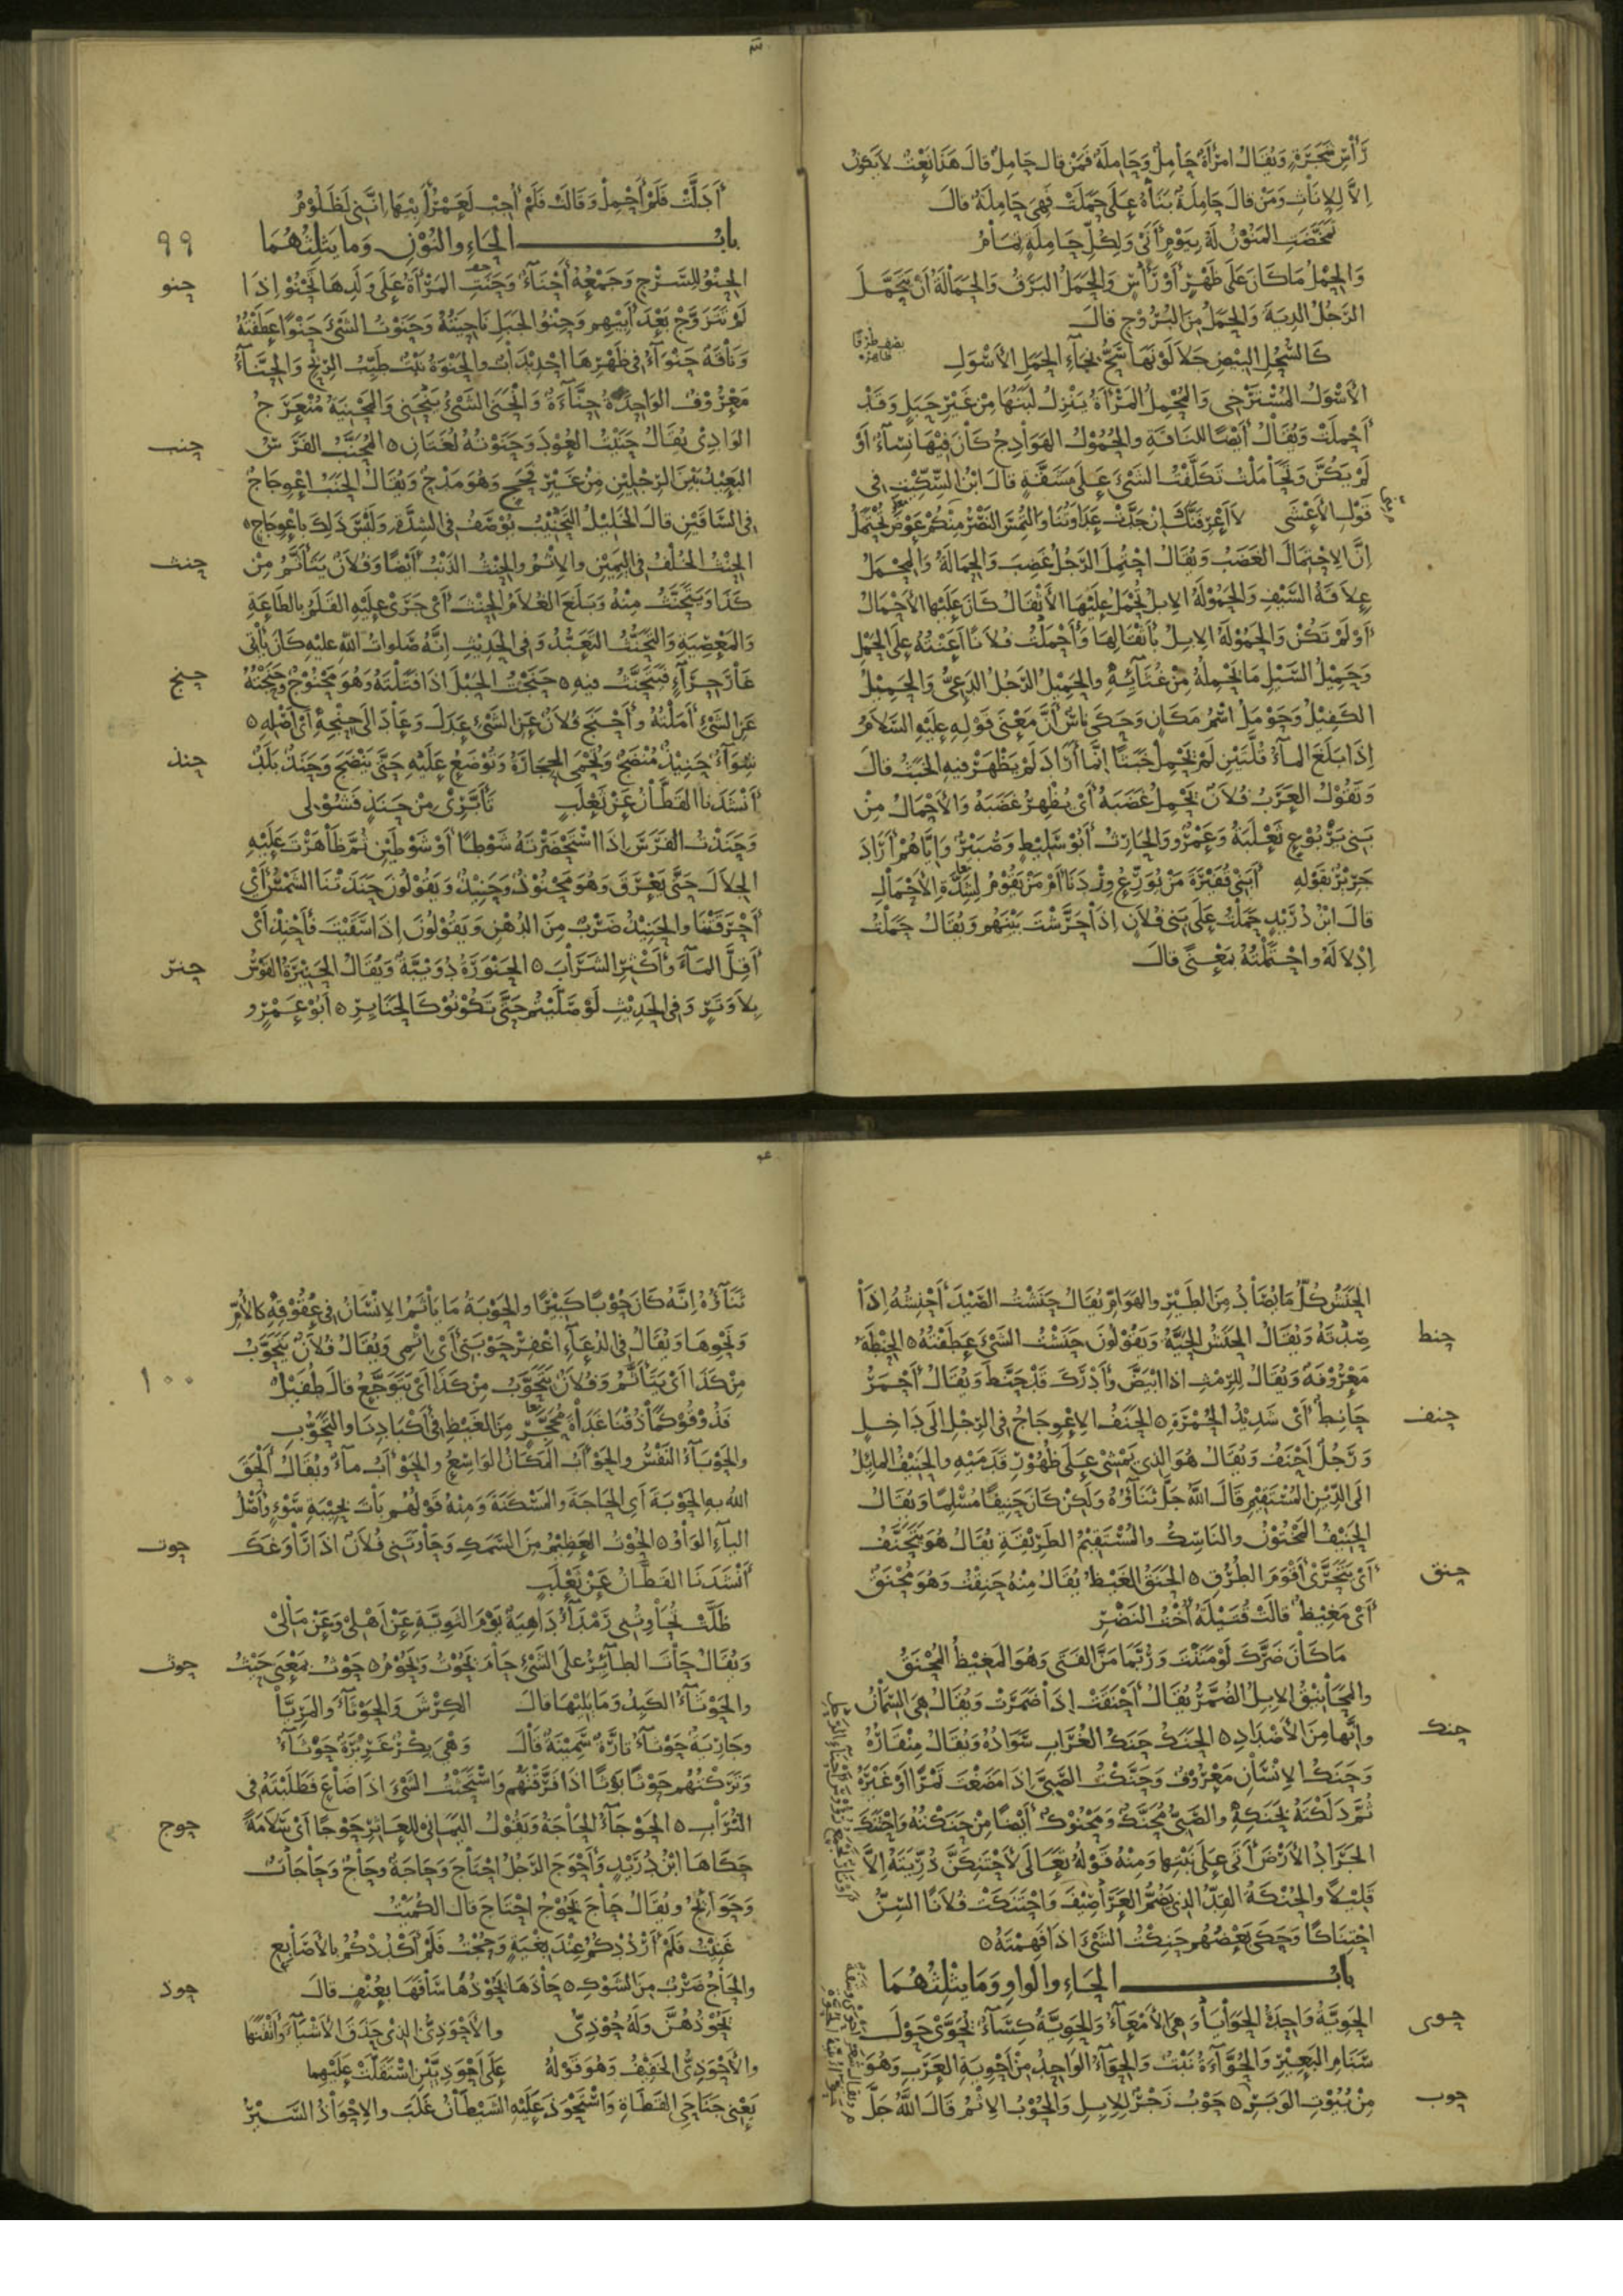 رَأْسِ شَجَرَةٍ وَيُقَالُ امْرَأَةٌ حَامِلٌ وَحَامِلَةٌ فَمَنْ قال حَامِلٌ قالَ هَذَا نَعْتٌ لا يَكونُ
إلاَّ لِلإنَاثِ وَمَنْ قالَ حَامِلَةٌ بَنَاهُ عَلَى حَمَلَتْ فَهِيَ حَامِلَةٌ قالَ
تَمَخَّضَتِ المَنُوْنُ لَهُ بِيَوْمٍ أَنَى وَلِكُلِّ حَامِلَةٍ تَمامُ
وَالحِمْلُ مَا كَانَ عَلَى ظَهْرٍ أَوْ رَأْسٍ وَالحَمَلُ البَرَقُ وَالحَمَالَةُ أنْ يَتَحَمَّلَ
الرَّجُلُ الدِّيَةَ وَالحَمَلُ مِنَ البُرُوْجِ قالَ
كَالسُّحُلِ البِيْضِ جَلاَ لَوْنَهَا سَحُّ نِجَاءِ الحَمَلِ الأسْوَلِ
الأسْوَلُ المُسْتَرْخِي وَالمُحْمِلُ المَرْأَةُ يَنْزِلُ لَبَنُهَا مِنْ غَيْرِ حَبَلٍ وَقَدْ
أَحْمَلَتْ وَيُقَالُ أَيْضًا للنَاقَةِ والحُمُوْلُ الهَوَادِجُ كَانَ فِيْهَا نِسَاءٌ أَوْ
لَمْ يَكُنَّ وَتَحَامَلْتُ تَكَلَّفْتُ الشَّيْءَ عَلَى مَشَقَّةٍ قالَ ابْنُ السِّكِّيْتِ في
قَوْلِ الأَعْشَى لاَ أَعْرِفَنَّكَ إنْ جَدَّتْ عَدَاوَتُنَا وَالتُمِسَ النَّصْرُ مِنْكُمْ عَوْضُ تُحْتَمَلُ
إنَّ الاِحْتِمَالَ الغَضَبُ وَيُقَالُ احْتُمِلَ الرَّجُلُ غَضِبَ وَالحِمَالَةُ وَالمِحْمَلُ
عِلاَقَةُ السَّيْفِ وَالحَمُوْلَةُ الإبِلُ تُحْمَلُ عَلَيْهَا الأَثْقَالُ كَانَ عَلَيْهَا الأَحْمَالُ
أَوْ لَمْ تَكُنْ وَالحُمُوْلَةُ الإبِلُ بِأَثْقَالِهَا وَأَحْمَلْتُ فُلاَنًا أَعَنْتُهُ عَلَى الحَمْلِ
وَحَمِيْلُ السَّيْلِ مَا يَحْمِلُهُ مِنْ غُثَائِهِ والحَمِيْلُ الرَّجُلُ الدَّعِيُّ وَالحَمِيْلُ
الكَفِيْلُ وَحَوْمَلُ اسْمُ مَكَانٍ وَحَكَى نَاسٌ أَنَّ مَعْنَى قَوْلِهِ عَلَيْهِ السَّلاَمُ
إذَا بَلَغَ المَاءُ قُلَّتَيْنِ لَمْ يَحْمِلْ خَبَثًا إنَّمَا أَرَادَ لَمْ يَظْهَرْ فيهِ الخَبَثُ قالَ
وَتَقُوْلُ العَرَبُ فُلاَنٌ يَحْمِلُ غَضَبَهُ أَيْ يُظْهِرُ غَضَبَهُ وَالأَحْمَالُ مِنْ
بَنِي يَرْبُوْعٍ ثَعْلَبَةُ وَعَمْرٌو وَالحَارِثُ أَبُوْ سَلِيْطٍ وَصُبَيْرٌ وَإيَّاهُمْ أَرَادَ
جَرِيْرٌ بِقَوْلِهِ أَبَنِي قُفَيْرَةَ مَنْ يُوَرِّعُ وِرْدَنَا أَمْ مَنْ يَقُوْمُ لِشِدَّةِ الأَحْمَالِ
قالَ ابْنُ دُرَيْدٍ حَمَلْتُ عَلَى بَنِي فُلاَنٍ إذَا حَرَّشْتَ بَيْنَهُم وَيُقَالُ حَمَلْتُ
إدْلاَلَهُ واحْتَمَلْتُهُ بِمَعْنًى قالَ
أَدَلَّتْ فَلَمْ أَحْمِلْ وَقَالَتْ فَلَمْ أُجِبْ لَعَمْرُ أَبِيْهَا إنَّنِي لَظَلُوْمُ
بابُ الحَاءِ والنُوْنِ وَما يَثلِثُهُمَا
٩٩
حنو
الحِنْوُ للسَّرْجِ وَجَمْعُهُ أَحْنَاءٌ وَحَنَتِ المَرْأَةُ عَلَى وَلَدِهَا تَحْنُوْ إذَا
لَمْ تَتَزَوَّجْ بَعْدَ أَبِيْهِم وَحِنْوُ الجَبَلِ نَاحِيَتُهُ وَحَنَوْتُ الشَّيْءَ حَنْوًا عَطَفْتُهُ
وَنَاقَةٌ حَنْوَاءُ في ظَهْرِهَا احْدِيْدَابٌ والحَنْوَةُ نَبْتٌ طَيِّبُ الرِّيْحِ وَالحِنَّاءُ
مَعْرُوْفٌ الوَاحِدَةُ حِنَّاءَةٌ وَانْحَنَى الشَّيْءُ يَنْحَنِي وَالمَحْنِيَةُ مُنْعَرَجُ
الوَادِيْ يُقَالُ حَنَيْتُ العُوْدَ وَحَنَوْتُهُ لُغَتَانِ ٥ المُحَنَّبُ الفَرَسُ
حنب
البَعِيْدُ بَيْنَ الرِّجْلَيْنِ مِنْ غَيْرِ فَحَجٍ وَهُوَ مَدْحٌ وَيُقَالُ الحَنَبُ اعْوِجَاجٌ
في السَّاقَيْنِ قالَ الخَلِيْلُ التَّحْنِيْبُ يُوْصَفُ في الشِدَّةِ وَلَيْسَ ذَلِكَ باعْوِجَاجٍ ٥
الحِنْثُ الخُلْفُ في اليَمِيْنِ والإثْمُ والحِنْثُ الذَنْبُ أَيْضًا وَفُلاَنٌ يَتَأَثَّمُ مِنْ
حنث
كَذَا وَيَتَحَنَّثُ مِنْهُ وَبَلَغَ الغُلاَمُ الحِنْثَ أَيْ جَرَى عَلَيْهِ القَلَمُ بِالطَّاعَةِ
وَالمَعْصِيَةِ وَالتَحَنُّثُ التَعَبُّدُ وَفي الحَدِيْثِ إنَّهُ صَلَواتُ اللّهِ عليْهِ كَانَ يَأْتي
غَارَ حِرَاءٍ فَيَتَحَنَّثُ فيهِ ٥ حَنَجْتُ الحَبْلَ إذَا فَتَلْتَهُ وَهُوَ مَحْنُوْجٌ وَحَنَجْتُهُ
حنج
عَنِ الشَّيْءِ أَمَلْتُهُ وَأَحْنَجَ فُلاَنٌ عَنِ الشَّيْءِ عَدَلَ وَعَادَ إلَى حِنْجِهِ أَيْ أَصْلِهِ ٥
شِوَاءٌ حَنِيْذٌ مُنْضَجٌ وَتُحْمَى الحِجَارَةُ وَتُوْضَعُ عَلَيْهِ حَتَّى يَنْضَجَ وَحَنَذٌ بَلَدٌ
حنذ
أَنْشَدَنا القَطَّانُ عَنْ ثَعْلَبٍ تَأَبَّرِيْ مِنْ حَنَذٍ فَشُوْلِي
وَحَنَذْتُ الفَرَسَ إذَا اسْتَحْضَرْتَهُ شَوْطًا أَوْ شَوْطَيْنِ ثُمَّ ظَاهَرْتَ عَلَيْهِ
الجِلاَلَ حَتَّى يَعْرَقَ وَهُوَ مَحْنُوْذٌ وَحَنِيْذٌ وَيَقُوْلُوْنَ حَنَذَتْنَا الشَّمْسُ أَيْ
أَحْرَقَتْنَا والحَنِيْذُ ضَرْبٌ مِنَ الدُهْنِ وَيَقُوْلُوْنَ إذَا سَقَيْتَ فَأَحْنِذْ أَيْ
أَقِلَّ المَاءَ وَأَكْثِرِ الشَرَابَ ٥ الحِنَّوْرَةُ دُوَيْبَّةٌ وَيُقَالُ الحَنِيْرَةُ القَوْسُ
حنر
بِلاَ وَتَرٍ وَفي الحَدِيْثِ لَوْ صَلَّيْتُم حَتَّى تَكُوْنُوْا كَالحَنَايِرِ ٥ أَبُوْ عَمْرٍو
الحَنَشُ كُلُّ مَا يُصَادُ مِنَ الطَيْرِ والهَوَامِّ يُقَالُ حَنَشْتُ الصَّيْدَ أَحْنِشُهُ إذَا
صِدْتَهُ وَيُقَالُ الحَنَشُ الحَيَّةُ وَيَقُوْلُوْنَ حَنَشْتُ الشَّيْءَ عَطَفْتُهُ ٥ الحِنْطَةُ
حنط
مَعْرُوْفَةٌ وَيُقَالُ لِلرِّمْثِ اذا ابْيَضَّ وَأَدْرَكَ قَدْ حَنَطَ وَيُقَالُ أَحْمَرُ
حَانِطٌ أَيْ شَدِيْدُ الحُمْرَةِ ٥ الحَنَفُ الاعْوِجَاجُ في الرِجْلِ إلَى دَاخِلٍ
حنف
وَرَجُلٌ أَحْنَفُ وَيُقَالُ هُوَ الذِي يَمْشِي عَلَى ظُهُوْرِ قَدَمَيْهِ والحَنِيْفُ المائِلُ
الَى الدِّيْنِ المُسْتَقِيْمِ قَالَ اللّهُ جَلَّ ثَنَاؤُهُ وَلَكِنْ كَانَ حَنِيفًا مُسْلِمًا وَيُقَالُ
الحَنِيْفُ المَخْتُوْنُ والنَاسِكُ والمُسْتَقِيْمُ الطَرِيْقَةِ يُقَالُ هُوَ يَتَحَنَّفُ
أَيْ يَتَحَرَّى أَقْوَمَ الطُرُقِ ٥ الحَنَقُ الغَيْظُ يُقَالُ مِنْهُ حَنِقْتُ وَهُوَ مُحْنَقٌ
حنق
أَيْ مَغِيْظٌ قالَتْ قُتَيْلَةُ أُخْتُ النَضْرِ
مَا كَانَ ضَرَّكَ لَوْ مَنَنْتَ وَرُبَّمَا مَنَّ الفَتَى وَهُوَ المَغِيْظُ المُحْنَقُ
والمَحَانِيْقُ الإبِلُ الضُمَّرُ يُقَالُ أَحْنَقَتْ إذَا ضَمَرَتْ وَيُقَالُ هِيَ السِّمَانُ
وإنَّها مِنَ الأَضْدَادِ ٥ الحَنَكُ حَنَكُ الغُرَابِ سَوَادُهُ وَيُقَالُ مِنْقَارُهُ
حنك
وَحَنَكُ الإنْسَانِ مَعْرُوْفٌ وَحَنَّكْتُ الصَّبِيَّ إذَا مَضَغْتَ تَمْرًا أوْ غَيْرَهُ
ثُمَّ دَلَكْتَهُ بِحَنَكِهِ والصَّبِيُّ مُحَنَّكٌ وَمَحْنُوْكٌ أَيْضًا مِنْ حَنَكْتُهُ وَاحْتَنَكَ
الجَرَادُ الأَرْضَ أَتَى عَلَى نَبْتِهَا وَمِنْهُ قَوْلُهُ تَعَالَى لأَحْتَنِكَنَّ ذُرِّيَّتَهُ إلاَّ
قَلِيْلاً والحُنْكَةُ القِدُّ الذِي يَضُمُّ العَرَاصِيْفَ وَاحْتَنَكَتْ فُلاَنًا السِّنُّ
احْتِنَاكًا وَحَكَى بَعْضُهُم حَنِكْتُ الشَّيْءَ اذَا فَهِمْتَهُ ٥
بابُ الحَاءِ والوَاوِ وَمَا يثْلِثُهُمَا
الحَوِيَّةُ وَاحِدَةُ الحَوَايَا وَهِيَ الأَمْعَاءُ وَالحَوِيَّةُ كِسَاءٌ يُحَوَّى حَوْلَ
حوى
سَنَامِ البَعِيْرِ وَالحُوَّاءَةُ نَبْتٌ وَالحِوَاءُ الوَاحِدُ مِنْ أَحْوِيَةِ العَرَبِ وَهُوَ
مِنْ بُيُوْتِ الوَبَرِ ٥ حَوْبُ زَجْرٌ لِلإبِلِ وَالحُوْبُ الإثْمُ قَالَ اللّهُ جَلَّ
حوب
ثَنَاؤُهُ إنَّهُ كَانَ حُوْبًا كَبِيْرًا والحَوْبَةُ مَا يَأْثَمُ الإنْسَانُ في عُقُوْقِهِ كالأُمِّ
وَنَحْوِهَا وَيُقَالُ في الدُعَاءِ اغْفِرْ حَوْبَتِي أَيْ إثْمِي وَيُقَالُ فُلاَنٌ يَتَحَوَّبُ
مِنْ كَذَا أَيْ يَتَأَثَّمُ وَفُلاَنٌ يَتَحَوَّبُ مِنْ كَذَا أَيْ يَتَوَجَّعُ قالَ طُفَيْلٌ
١٠٠
فَذُوْقُوْا كَمَا ذُقْنَا غَدَاةَ مُحَجَّرٍ مِنَ الغَيْظِ في أَكْبَادِنَا والتَّحَوُّبِ
والحَوْبَاءُ النَفْسُ والحَوْأَبُ المَكَانُ الوَاسِعُ والحَوْأَبُ مَاءٌ وَيُقَالُ أَلْحَقَ
اللهُ بِهِ الحَوْبَةَ أَيِ الحَاجَةَ والمَسْكَنَةَ وَمِنْهُ قَوْلُهُم بَاتَ بِحِيْبَةِ سَوْءٍ وَأَصْلُ
اليَاءِ الوَاوُ ٥ الحُوْتُ العَظِيْمُ مِنَ السَّمَكِ وَحَاوَتَنِي فُلاَنٌ اذَا رَاوَغَكَ
حوت
أَنْشَدَنَا القَطَّانُ عَنْ ثَعْلَبٍ
ظَلَّتْ تُحَاوِتُنِي رَمْدَاءُ دَاهِيَةٌ يَوْمَ الثَوِيَّةِ عَنْ أَهْلِي وَعَنْ مَالِي
وَيُقَالُ حَاتَ الطَائِرُ عَلَى الشَّيْءِ حَامَ يَحُوْتُ وَيَحُوْمُ ٥ حَوْثُ بمَعْنَى حَيْثُ
حوث
والحَوْثَاءُ الكَبِدُ وَمَا يَلِيْهَا قالَ الكِرْشَ وَالحَوْثَاءَ وَالمَرِيَّا
وَجَارِيَةٌ حَوْثَاءُ تارَّةٌ سَمِيْنَةٌ قَالَ وَهْيَ بِكْرٌ غَرِيْرَةٌ حَوْثَاءُ
وَتَرَكْتُهُم حَوْثًا بَوْثًا اذَا فَرَّقْتَهُم وَاسْتَحَثْتُ الشَّيْءَ اذَا ضَاعَ فَطَلَبْتَهُ في
التُرَابِ ٥ الحَوْجَاءُ الحَاجَةُ وَيَقُوْلُ اليَمَانِي للعَاثِرِ حَوْجًا أَيْ سَلاَمَةً
حوج
حَكَاهَا ابْنُ دُرَيْدٍ وَأَحْوَجَ الرَّجُلُ احْتَاجَ وَحَاجَةٌ وَحَاجٌ وَحَاجَاتٌ
وَحَوَائِجُ وَيُقَالُ حَاجَ يَحُوْجُ احْتَاجَ قالَ الكُمَيْتُ
غَنِيْتُ فَلَمْ أَرْدُدْكُمُ عِنْدَ بُغْيَةٍ وَحُجْتُ فَلَمْ أَكْدُدْكُمُ بِالأَصَابِعِ
والحَاجُ ضَرْبٌ مِنَ الشَوْكِ ٥ حَاذَهَا يَحُوْذُهَا سَاقَهَا بِعُنْفٍ قالَ
حوذ
يَحُوْذُهُنَّ وَلَهُ حُوْذِيُّ والأَحْوَذِيُّ الذِي حَذَقَ الأَشْيَاءَ وَأَتْقَنَهَا
والأَحْوَذِيُّ الخَفِيْفُ وَهُوَ قَوْلُهُ عَلَى أَحْوَذِيَّيْنِ اسْتَقَلَّتْ عَلَيْهِما
يَعْنِي جَنَاحَيِ القَطَاةِ وَاسْتَحْوَذَ عَلَيْهِ الشَيْطَانُ غَلَبَ والإحْوَاذُ السَّيْرُ